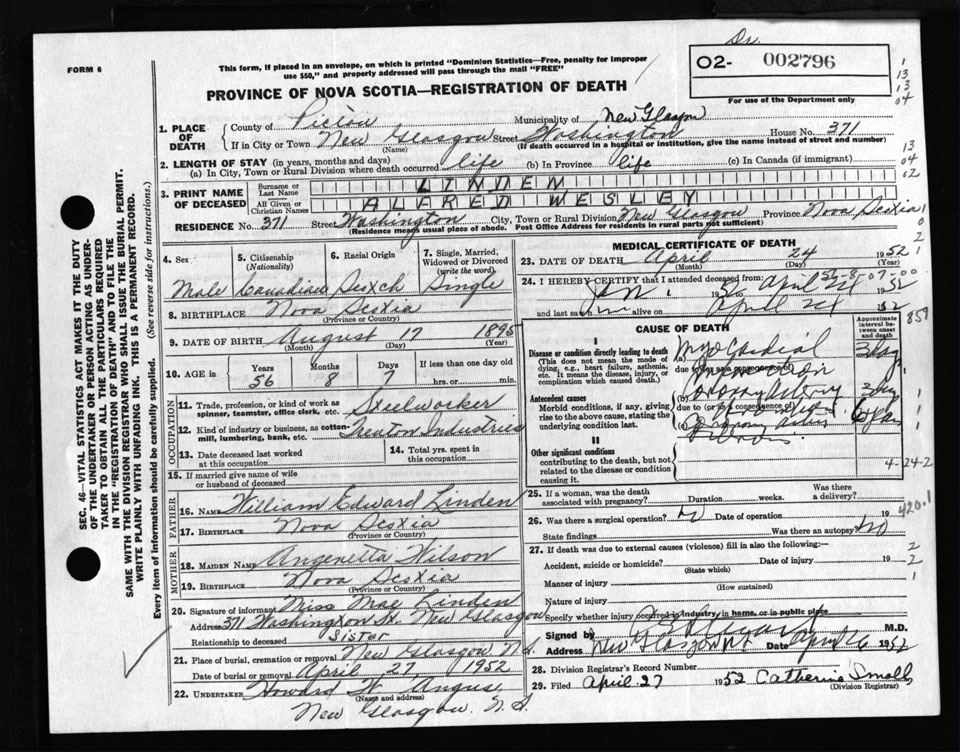 Dr.
FORM 6
This form, if placed in an envelope, on which is printed "Dominion Statistics—Free, penalty for improper
use $50," and properly addressed will pass through the mail "FREE"
O2- 002796
For use of the Department only
PROVINCE OF NOVA SCOTIA—REGISTRATION OF DEATH
1
13
13
04
13
04
02
SEC. 46—VITAL STATISTICS ACT MAKES IT THE DUTY
OF THE UNDERTAKER OR PERSON ACTING AS UNDER-
TAKER TO OBTAIN ALL THE PARTICULARS REQUIRED
IN THE "REGISTRATION OF DEATH" AND TO FILE THE
SAME WITH THE DIVISION REGISTRAR WHO SHALL ISSUE THE BURIAL PERMIT.
WRITE PLAINLY WITH UNFADING INK. THIS IS A PERMANENT RECORD.
Every item of information should be carefully supplied. (See reverse side for instructions.)
1. PLACE OF DEATH
County of Pictou Municipality of New Glasgow
If in City or Town New Glasgow Street Washington House No. 371
(Name) (If death occurred in a hospital or institution, give the name instead of street and number)
2. LENGTH OF STAY (in years, months and days)
(a) In City, Town or Rural Division where death occurred life (b) In Province life (c) In Canada (if immigrant)
3. PRINT NAME OF DECEASED
Surname or Last Name LINDEN
All Given or Christian Names ALFRED WESLEY
RESIDENCE No. 371 Street Washington City, Town or Rural Division New Glasgow Province Nova Scotia
(Residence means usual place of abode. Post Office Address for residents in rural parts not sufficient)
4. Sex Male
5. Citizenship (Nationality) Canadian
6. Racial Origin Scotch
7. Single, Married, Widowed or Divorced (write the word) Single
8. BIRTHPLACE Nova Scotia
(Province or Country)
9. DATE OF BIRTH August 17 1895
(Month) (Day) (Year)
10. AGE in Years 56 Months 8 Days 7 If less than one day old
hrs. or min.
OCCUPATION
11. Trade, profession, or kind of work as spinner, teamster, office clerk, etc. Steelworker
12. Kind of industry or business, as cotton-mill, lumbering, bank, etc. Trenton Industries
13. Date deceased last worked at this occupation
14. Total yrs. spent in this occupation
15. If married give name of wife or husband of deceased
FATHER
16. NAME William Edward Linden
17. BIRTHPLACE Nova Scotia
(Province or Country)
MOTHER
18. MAIDEN NAME Angenetta Wilson
19. BIRTHPLACE Nova Scotia
(Province or Country)
20. Signature of informant Miss Mae Linden
Address 371 Washington St. New Glasgow
Relationship to deceased Sister
21. Place of burial, cremation or removal New Glasgow N.S.
Date of burial or removal April 27, 1952
22. UNDERTAKER Howard W. Angus,
(Name and address)
New Glasgow. N.S.
MEDICAL CERTIFICATE OF DEATH
23. DATE OF DEATH April 24 1952
(Month) (Day) (Year)
24. I HEREBY CERTIFY that I attended deceased from:
Jan 1 1952 April 24 1952
and last saw him alive on April 24 1952
CAUSE OF DEATH
Approximate interval between onset and death
I
Disease or condition directly leading to death
(This does not mean the mode of dying, e.g., heart failure, asthenia, etc. It means the disease, injury, or complication which caused death.)
(a) Myocardial
due to (or as a consequence of)
Antecedent causes
Morbid conditions, if any, giving rise to the above cause, stating the underlying condition last.
(b) Coronary Artery
due to (or as a consequence of)
(c) Coronary
II
Other significant conditions
contributing to the death, but not related to the disease or condition causing it.
859
4-24-2
25. If a woman, was the death associated with pregnancy? Duration weeks. Was there a delivery?
26. Was there a surgical operation? no Date of operation 19
State findings Was there an autopsy? no
420.1
27. If death was due to external causes (violence) fill in also the following:
Accident, suicide or homicide? Date of injury 19
(State which)
Manner of injury
(How sustained)
Nature of injury
Specify whether injury occurred in industry, in home, or in public place
Signed by M.D.
Address New Glasgow NS Date April 26 1952
28. Division Registrar's Record Number
29. Filed April 27 1952 Catherine Small
(Division Registrar)